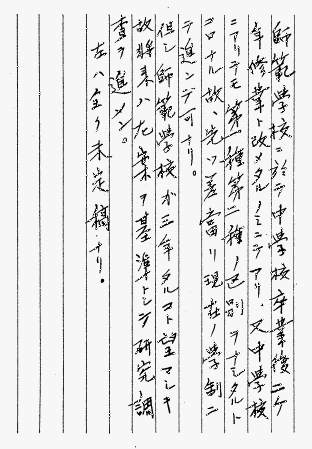 師範学校ニ於テ中学校卒業後二ケ
年修業ト改メタルノミニテアリ、又中学校
ニアリテモ第一種第二種ノ区別ヲナシタルト
ニロナル故、先ツ差当リ現在ノ学制ニ
テ進ンデ可ナリ。
但シ師範学校ガ三年タルコト望マシキ
故将来ハ左案ヲ基準トシテ研究調
査ヲ進メン。
左ハ全ク未定稿ナリ。